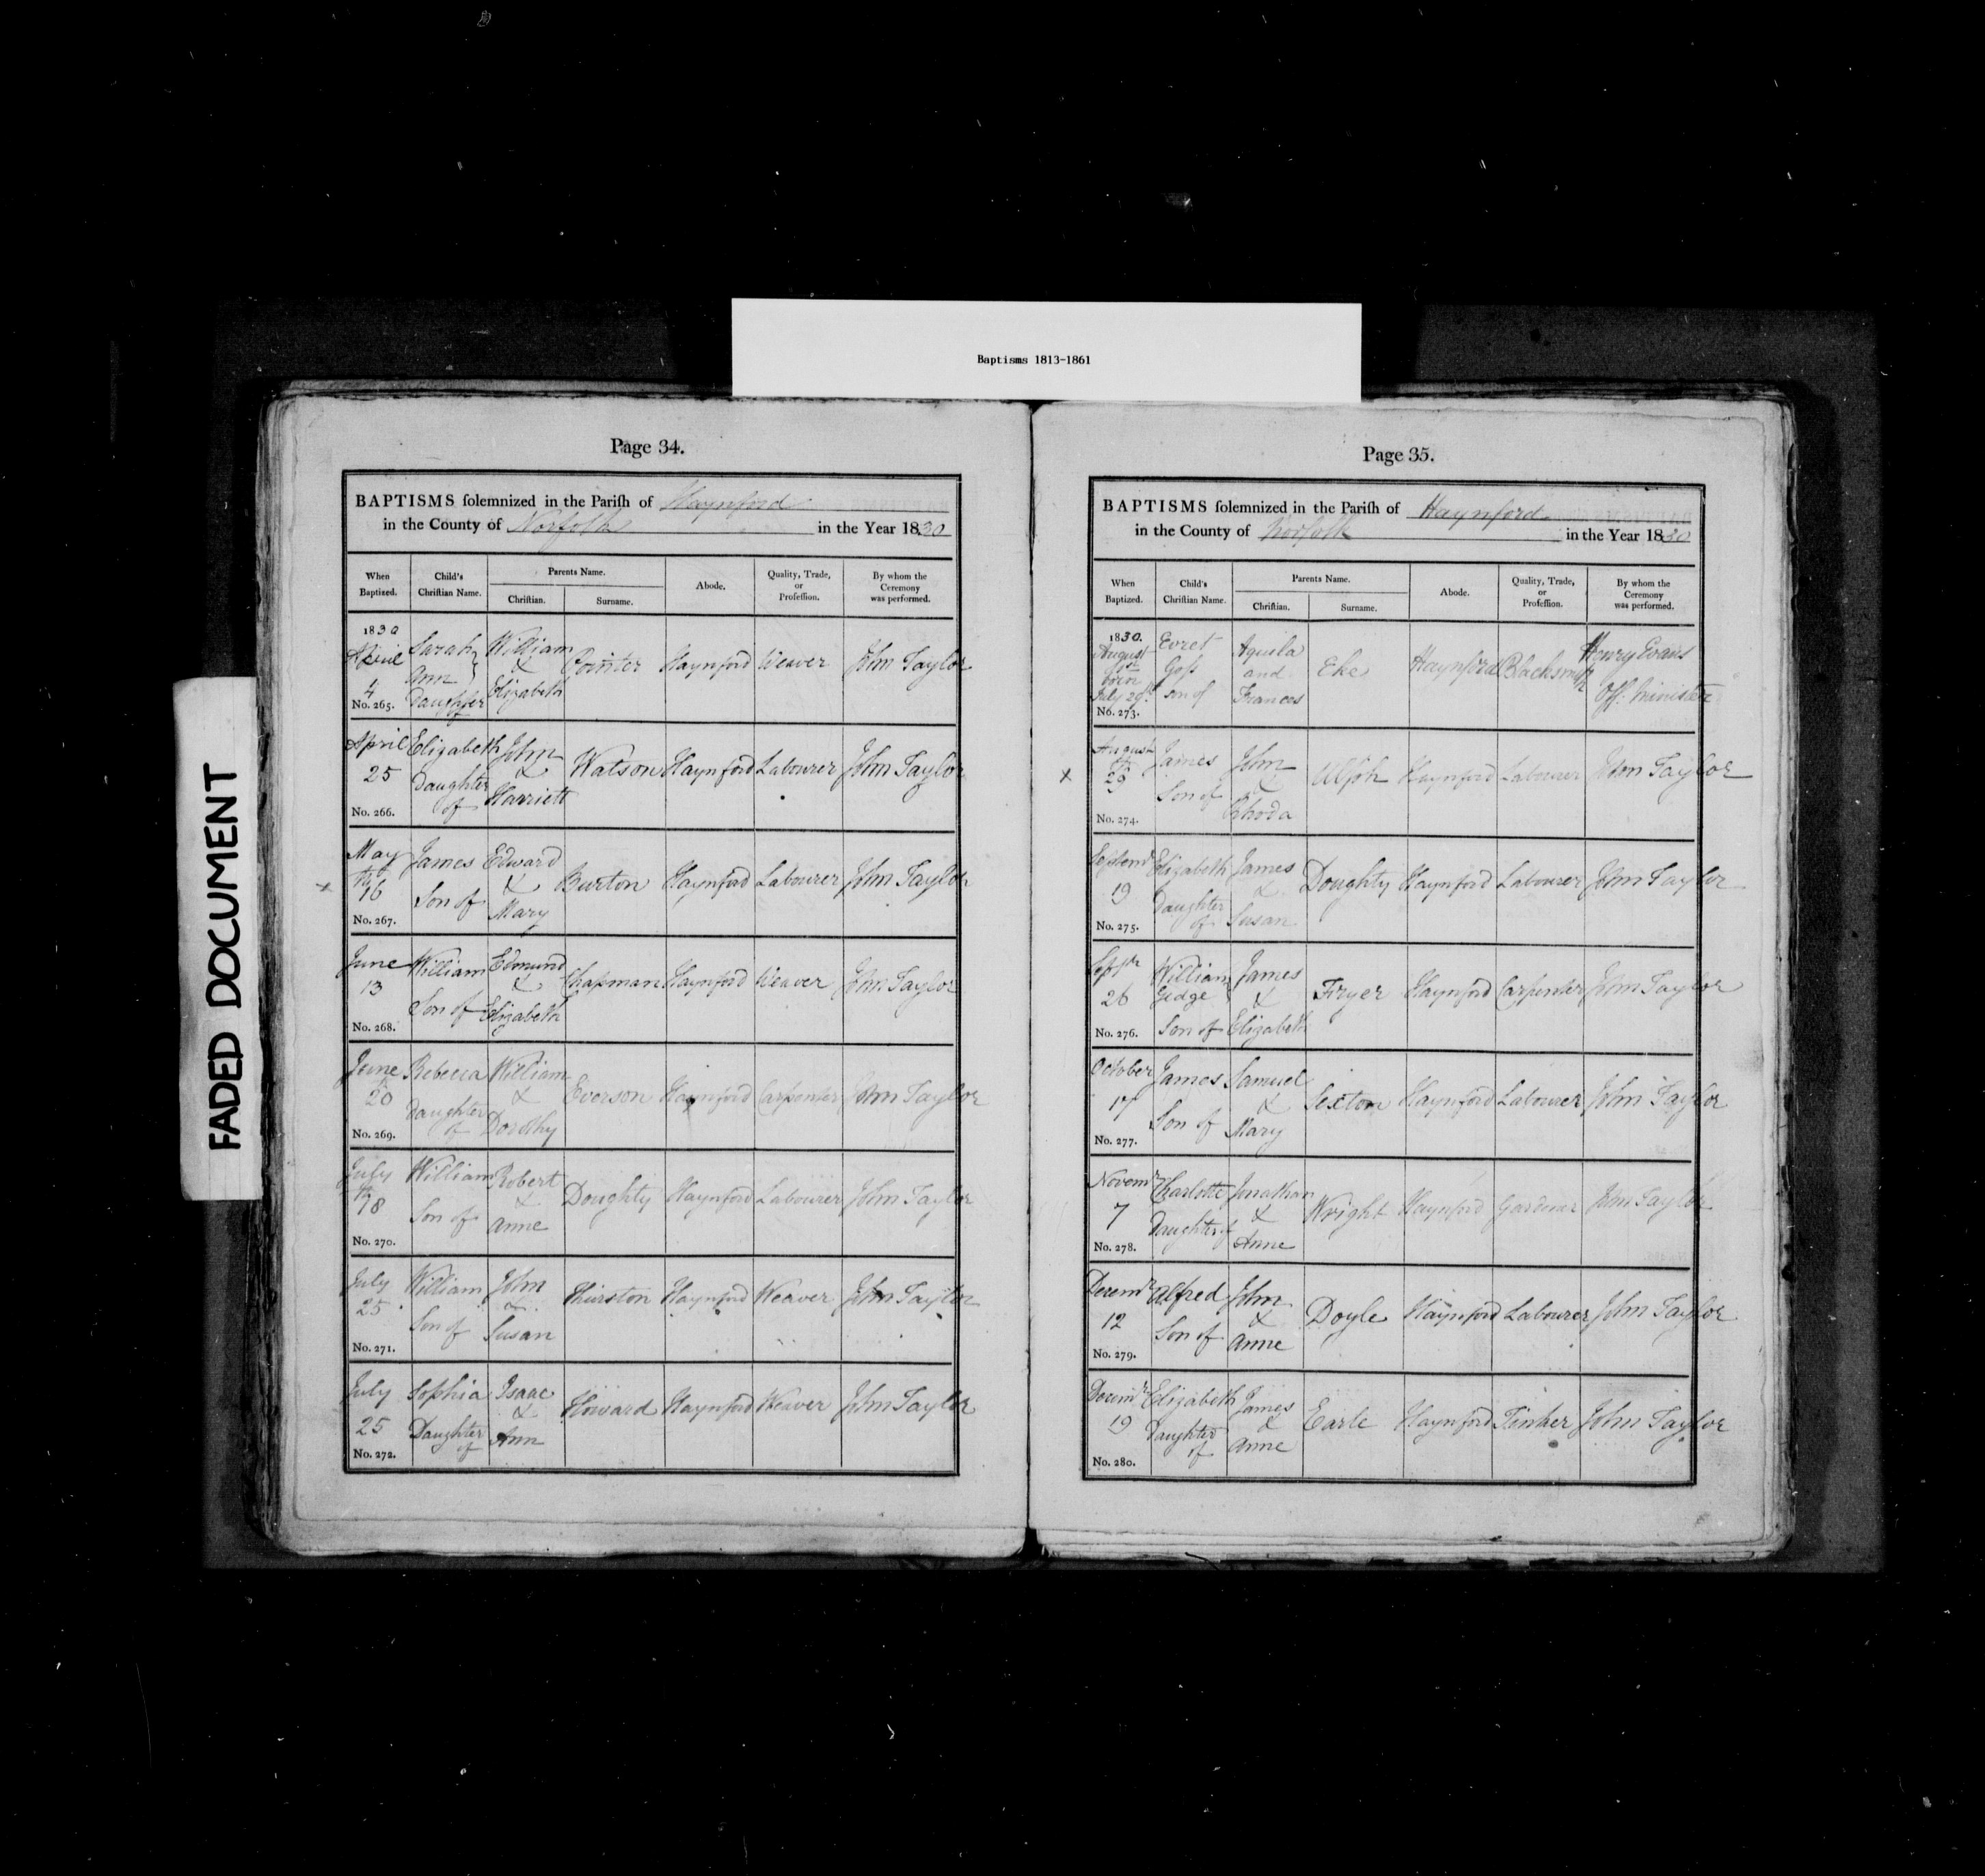 Baptisms 1813-1861
FADED DOCUMENT
Page 34.
BAPTISMS ſolemnized in the Pariſh of Haynford
in the County of Norfolk in the Year 1830
When Baptized. Child's Chriſtian Name. Parents Name. Chriſtian. Surname. Abode. Quality, Trade, or Profeſſion. By whom the Ceremony was performed.
1830 April 4 No. 265. Sarah Ann Daughter of William & Elizabeth Pointer Haynford Weaver John Taylor
April 25 No. 266. Elizabeth Daughter of John & Harriett Watson Haynford Labourer John Taylor
May 16 No. 267. James Son of Edward & Mary Burton Haynford Labourer John Taylor
June 13 No. 268. William Son of Edmund & Elizabeth Chapman Haynford Weaver John Taylor
June 20 No. 269. Rebecca Daughter of William & Dorothy Everson Haynford Carpenter John Taylor
July 18 No. 270. William Son of Robert & Anne Doughty Haynford Labourer John Taylor
July 25 No. 271. William Son of John & Susan Thurston Haynford Weaver John Taylor
July 25 No. 272. Sophia Daughter of Isaac & Ann Howard Haynford Weaver John Taylor
Page 35.
BAPTISMS ſolemnized in the Pariſh of Haynford
in the County of Norfolk in the Year 1830
When Baptized. Child's Chriſtian Name. Parents Name. Chriſtian. Surname. Abode. Quality, Trade, or Profeſſion. By whom the Ceremony was performed.
1830. August born July 29th No. 273. Evret Goſs son of Aquila and Frances Eke Haynford Blacksmith Henry Evans Off. Minister
August 29 No. 274. James Son of John & Rhoda Alſoh Haynford Labourer John Taylor
Septemr 19 No. 275. Elizabeth Daughter of James & Susan Doughty Haynford Labourer John Taylor
Septr 26 No. 276. William Gidge Son of James & Elizabeth Fryer Haynford Carpenter John Taylor
October 17 No. 277. James Son of Samuel & Mary Sexton Haynford Labourer John Taylor
Novemr 7 No. 278. Charlotte Daughter of Jonathan & Anne Wright Haynford Gardener John Taylor
Decemr 12 No. 279. Alfred Son of John & Anne Doyle Haynford Labourer John Taylor
Decemr 19 No. 280. Elizabeth Daughter of James & Anne Earle Haynford Tinker John Taylor